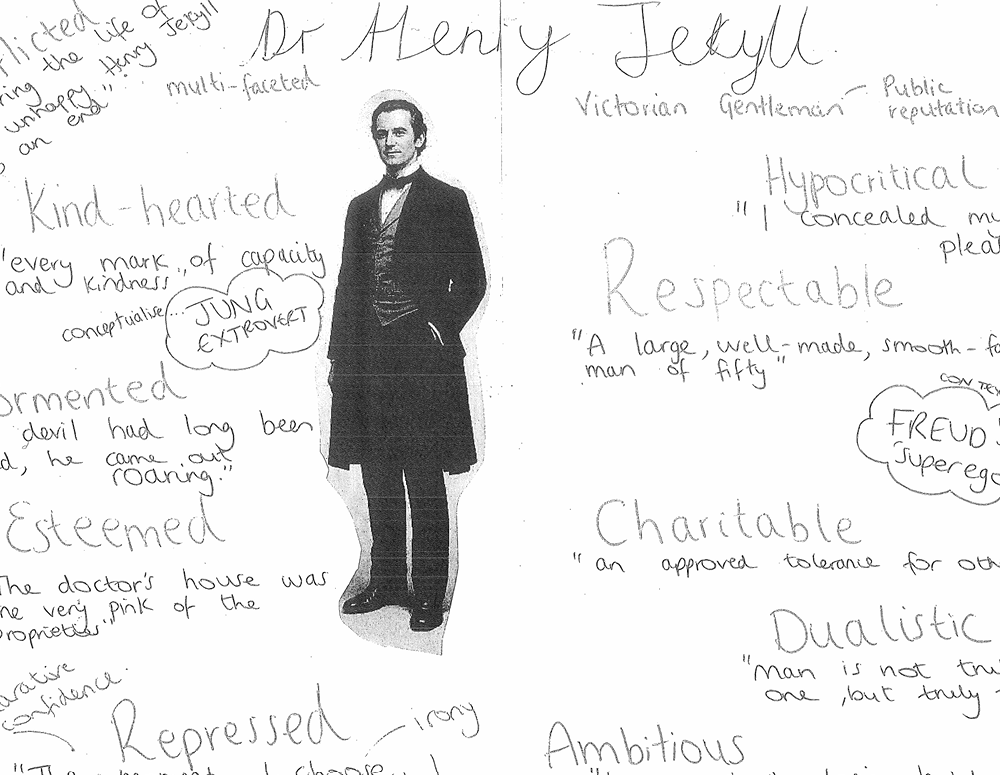 Dr Henry Jekyll
flicted
ring the life of
unhappy Henry Jekyll
an end"
multi-faceted
Victorian Gentleman
Public
reputation
Kind-hearted
"every mark.. of capacity
and kindness
conceptualise...
JUNG
EXTROVERT
ormented
devil had long been
d, he came out
roaring."
Esteemed
The doctor's house was
ne very pink of the
proprieties"
arative
confidence.
Repressed
irony
I choose, I
Hypocritical
"I concealed my
pleas
Respectable
"A large, well-made, smooth-fa
man of fifty"
CONTEX
FREUD'S
Superego
Charitable
"an approved tolerance for oth
Dualistic
"man is not tru
one, but truly
Ambitious